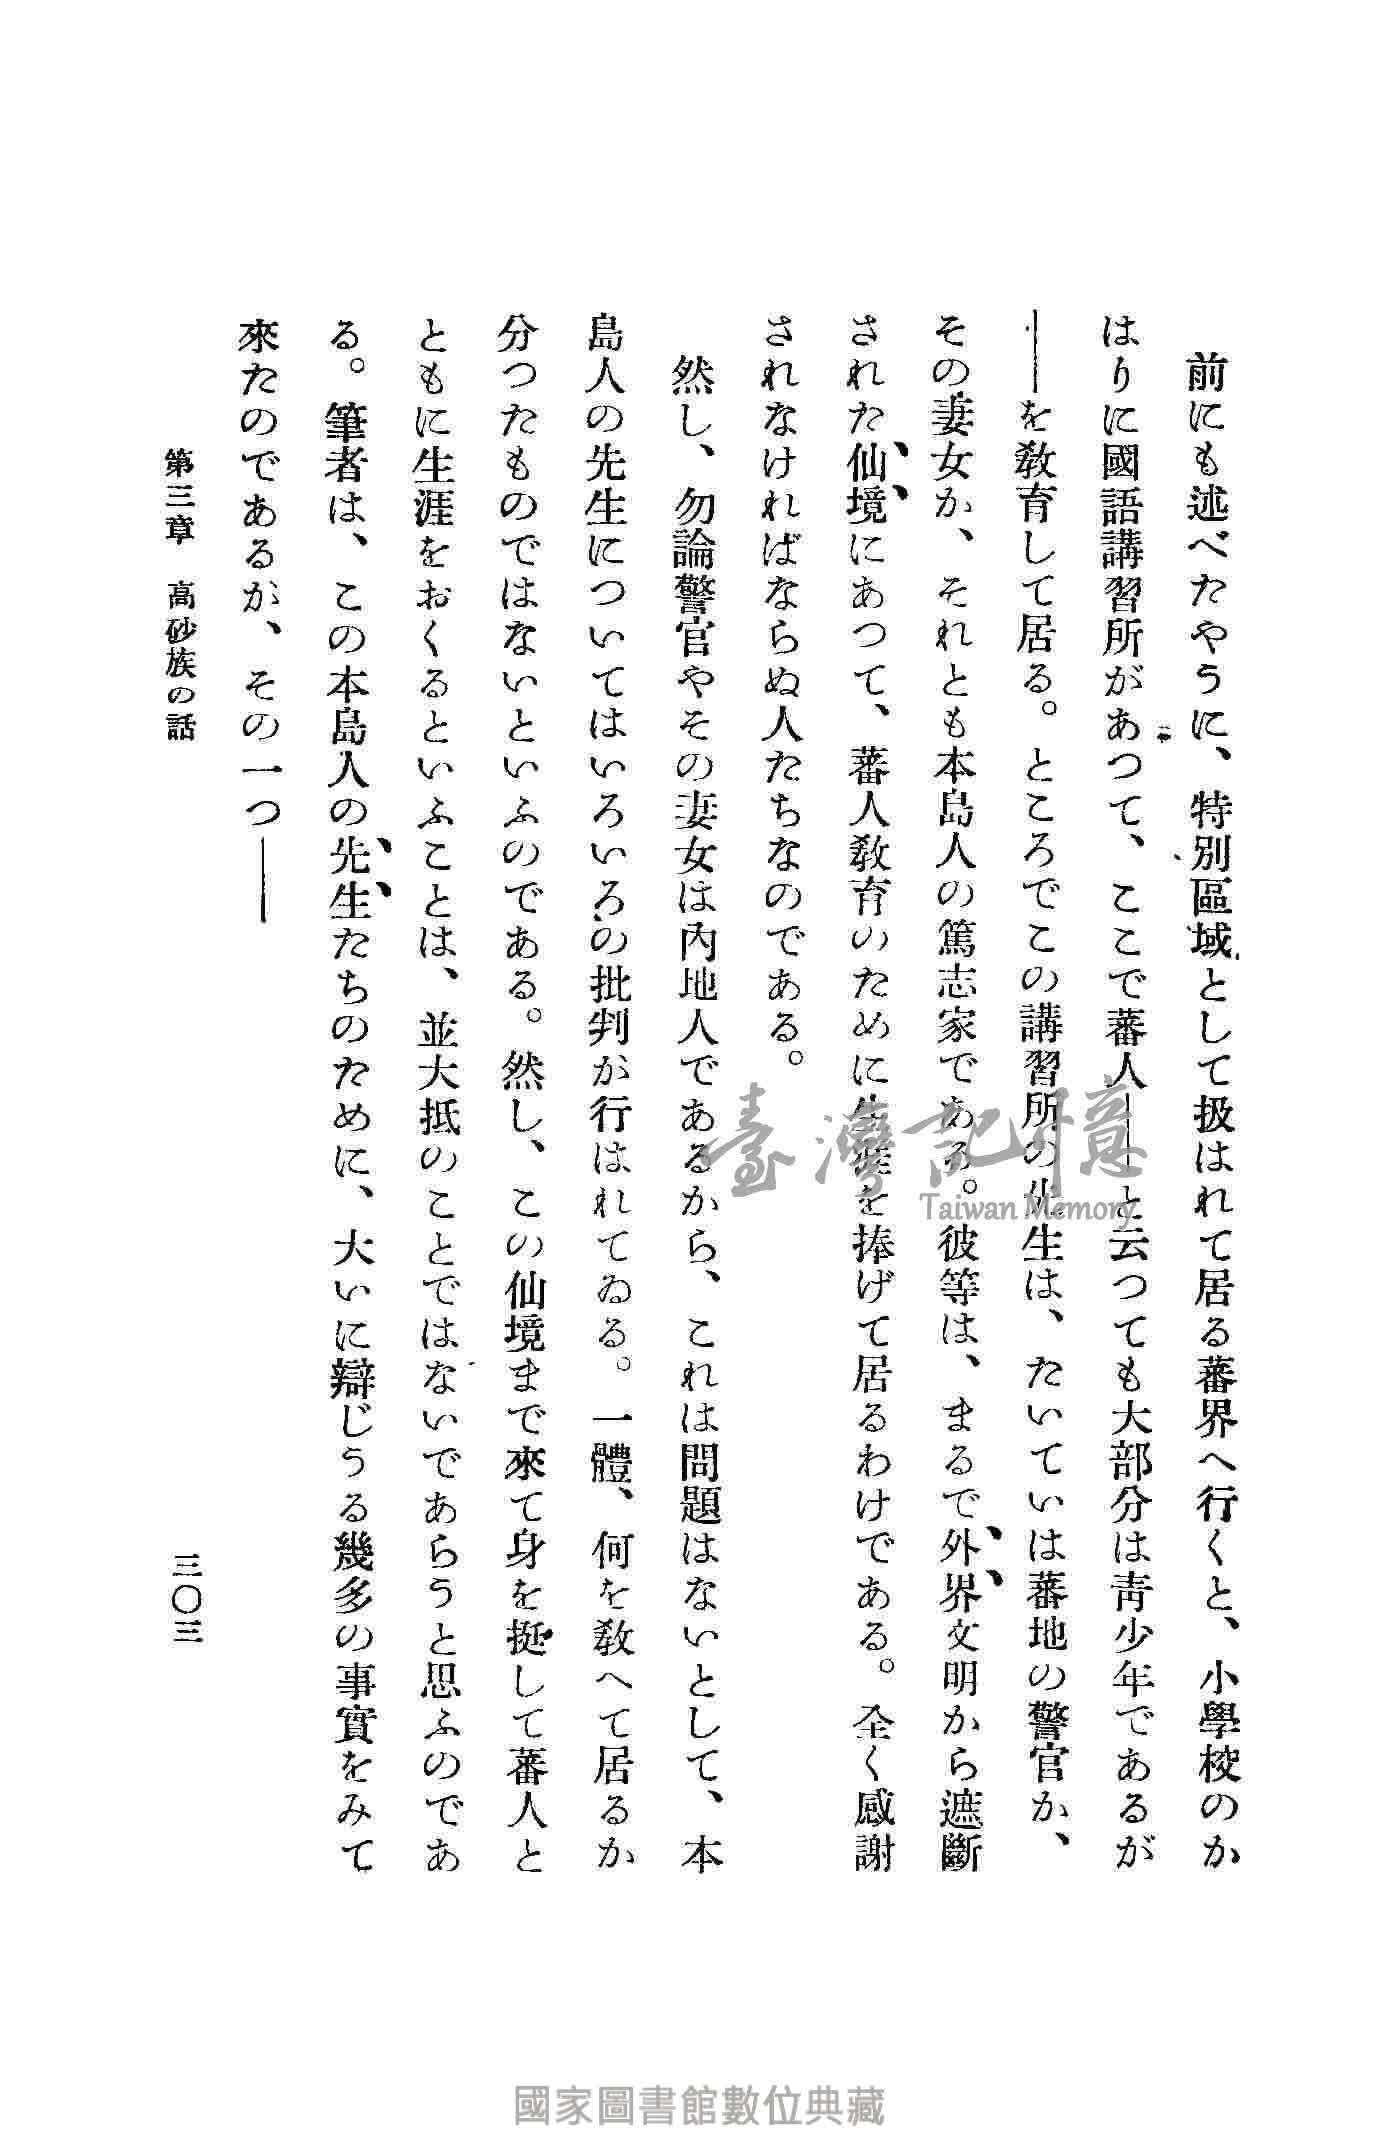 前にも述べたやうに、特別區域として扱はれて居る蕃界へ行くと、小學校のか
はりに國語講習所があつて、ここで蕃人――と云つても大部分は青少年であるが
――を敎育して居る。ところでこの講習所の先生は、たいていは蕃地の警官か、
その妻女か、それとも本島人の篤志家である。彼等は、まるで外界文明から遮斷
された仙境にあつて、蕃人敎育のために生涯を捧げて居るわけである。全く感謝
されなければならぬ人たちなのである。
然し、勿論警官やその妻女は內地人であるから、これは問題はないとして、本
島人の先生についてはいろいろの批判が行はれてゐる。一體、何を敎へて居るか
分つたものではないといふのである。然し、この仙境まで來て身を挺して蕃人と
ともに生涯をおくるといふことは、並大抵のことではないであらうと思ふのであ
る。筆者は、この本島人の先生たちのために、大いに辯じうる幾多の事實をみて
來たのであるが、その一つ――
第三章　高砂族の話
三〇三
臺灣記憶
Taiwan Memory
國家圖書館數位典藏